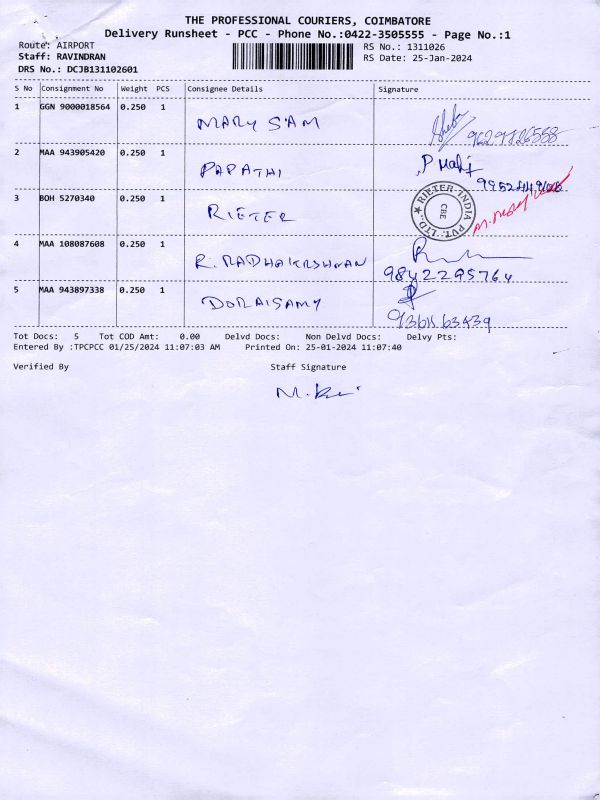 THE PROFESSIONAL COURIERS, COIMBATORE
Delivery Runsheet - PCC - Phone No.:0422-3505555 - Page No.:1
Route: AIRPORT RS No.: 1311026
Staff: RAVINDRAN RS Date: 25-Jan-2024
DRS No.: DCJB131102601
S No Consignment No Weight PCS Consignee Details Signature
1 GGN 9000018564 0.250 1 MARY SAM
2 MAA 943905420 0.250 1 PAPATHI
3 BOH 5270340 0.250 1 RIETER
RIETER INDIA PVT. LTD. CBE
4 MAA 108087608 0.250 1 R. RADHAKRSHNAN
9842295764
5 MAA 943897338 0.250 1 DORAISAMY
Tot Docs: 5 Tot COD Amt: 0.00 Delvd Docs: Non Delvd Docs: Delvy Pts:
Entered By :TPCPCC 01/25/2024 11:07:03 AM Printed On: 25-01-2024 11:07:40
Verified By Staff Signature